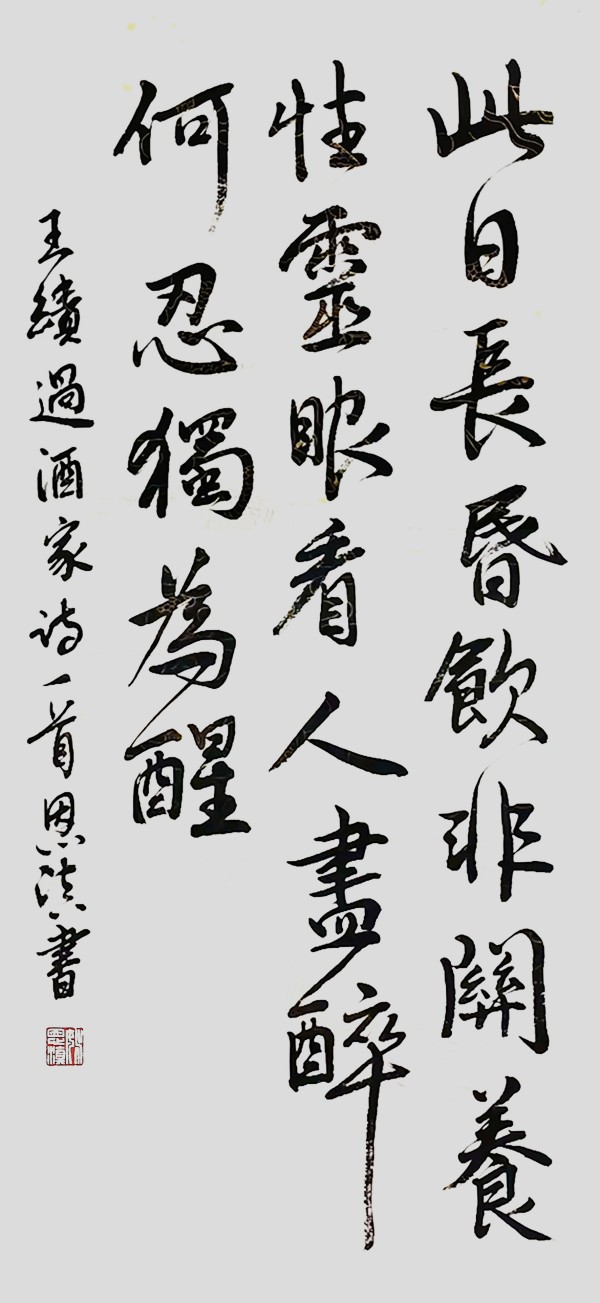 此日長昏飲非關養
性靈眼看人盡醉
何忍獨為醒
王績過酒家诗一首恩滨書